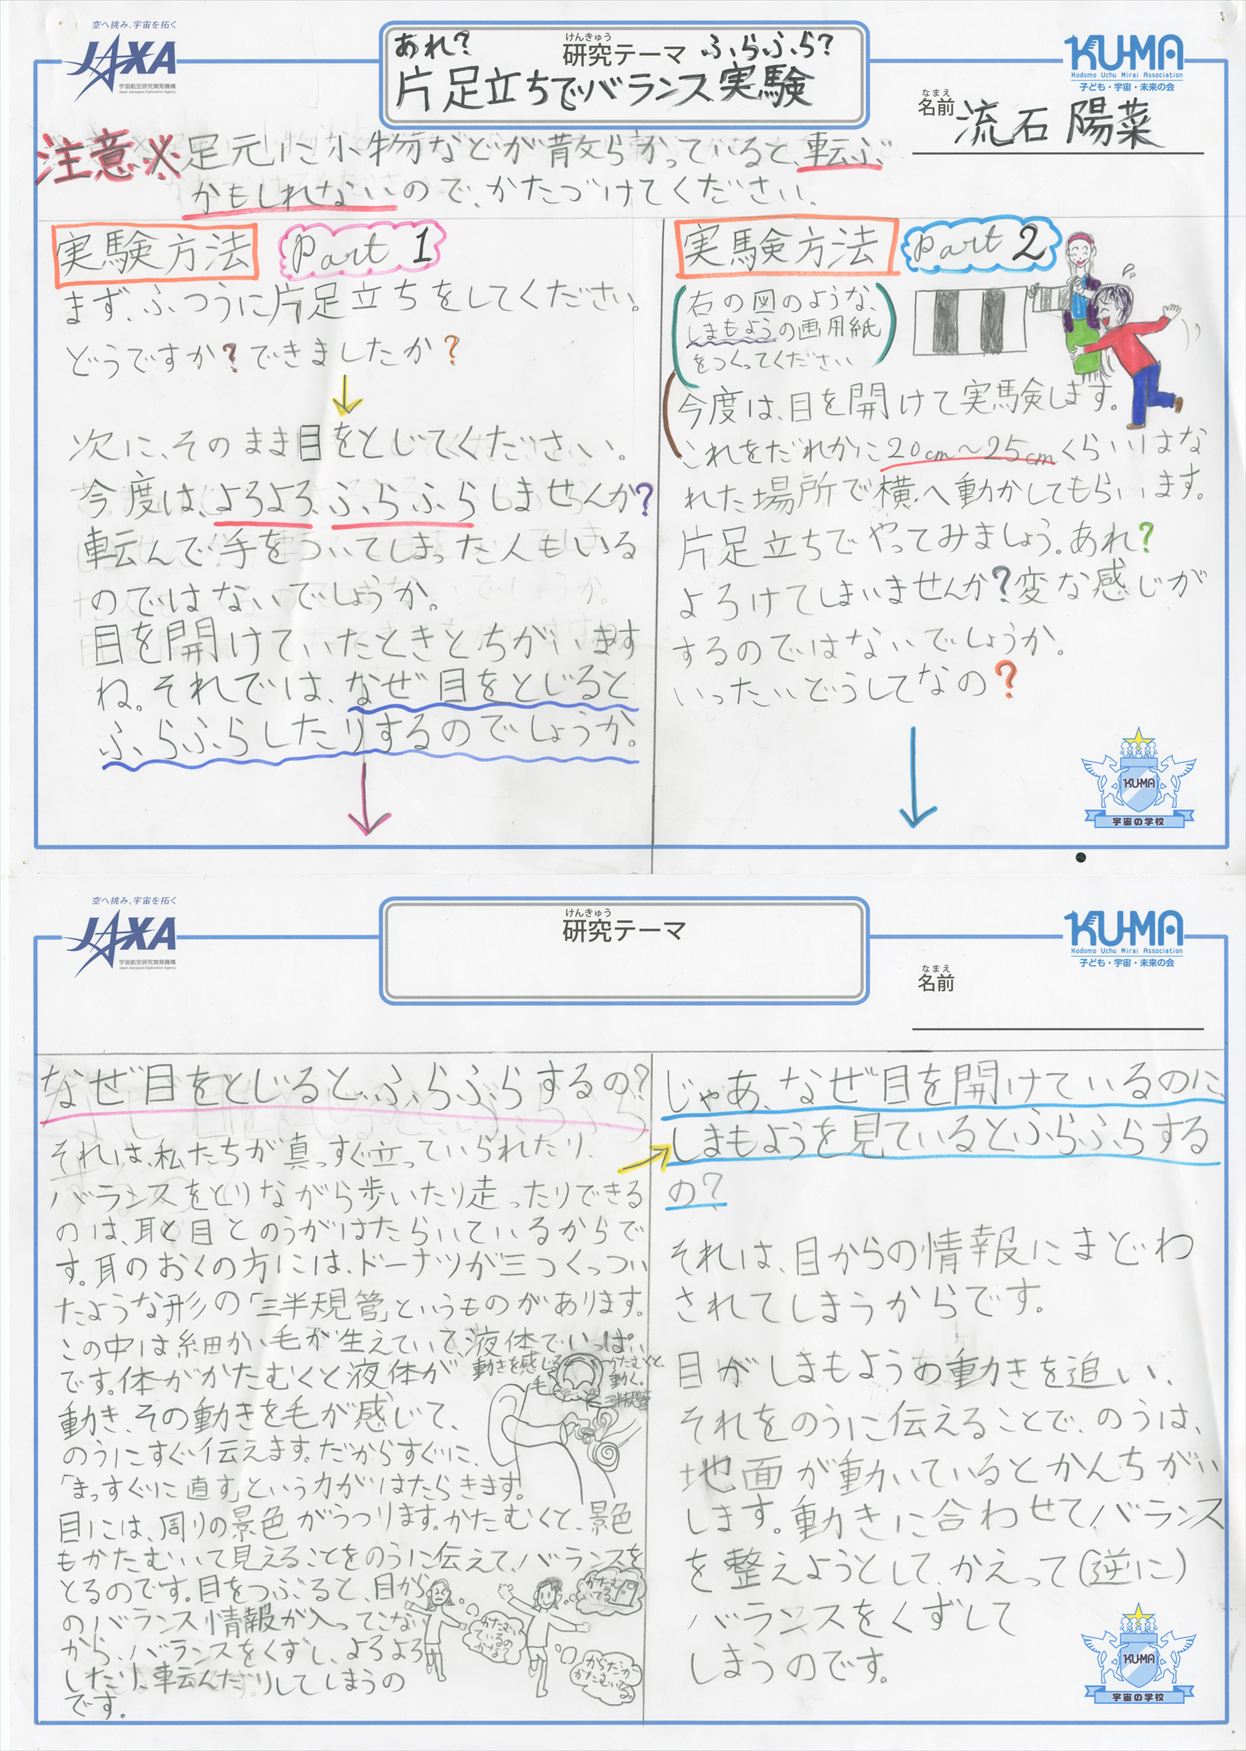 空へ挑み、宇宙を拓く
JAXA
宇宙航空研究開発機構
Japan Aerospace Exploration Agency
けんきゅう
研究テーマ
あれ? ふらふら?
片足立ちでバランス実験
KU-MA
Kodomo Uchu Mirai Association
子ども・宇宙・未来の会
なまえ
名前 流石 陽菜
注意※足元に小物などが散らかっていると、転ぶ
かもしれないので、かたづけてください。
実験方法 Part 1
まず、ふつうに片足立ちをしてください。
どうですか?できましたか?
次に、そのまま目をとじてください。
今度は、よろよろ、ふらふらしませんか?
転んで手をついてしまった人もいる
のではないでしょうか。
目を開けていたときとちがいます
ね。それでは、なぜ目をとじると
ふらふらしたりするのでしょうか。
実験方法 Part 2
右の図のような、
しまもようの画用紙
をつくってください
今度は、目を開けて実験します。
これをだれかに20cm～25cmくらいはな
れた場所で横へ動かしてもらいます。
片足立ちでやってみましょう。あれ?
よろけてしまいませんか?変な感じが
するのではないでしょうか。
いったいどうしてなの?
KU-MA
宇宙の学校
空へ挑み、宇宙を拓く
JAXA
宇宙航空研究開発機構
Japan Aerospace Exploration Agency
けんきゅう
研究テーマ
KU-MA
Kodomo Uchu Mirai Association
子ども・宇宙・未来の会
なまえ
名前
なぜ目をとじると、ふらふらするの?
それは、私たちが真っすぐ立っていられたり、
バランスをとりながら歩いたり走ったりできる
のは、耳と目とのうがはたらいているからで
す。耳のおくの方には、ドーナツが三つくっつい
たような形の「三半規管」というものがあります。
この中は細かい毛が生えていて、液体でいっぱい
です。体がかたむくと液体が
動き、その動きを毛が感じて、
のうにすぐ伝えます。だからすぐに、
「まっすぐに直す」という力がはたらきます。
目には、周りの景色がうつります。かたむくと、景色
もかたむいて見えることをのうに伝えて、バランスを
とるのです。目をつぶると、目から
のバランス情報が入ってこない
から、バランスをくずし、よろよろ
したり、転んだりしてしまうの
です。
動きを感じる
毛
かたむくと、
動く。
三半規管
かたむい
ているの
かな
かたむい
てる!
からだが
かたむいてる
じゃあ、なぜ目を開けているのに、
しまもようを見ているとふらふらする
の?
それは、目からの情報にまどわ
されてしまうからです。
目がしまもようの動きを追い、
それをのうに伝えることで、のうは、
地面が動いているとかんちがい
します。動きに合わせてバランス
を整えようとして、かえって(逆に)
バランスをくずして
しまうのです。
KU-MA
宇宙の学校